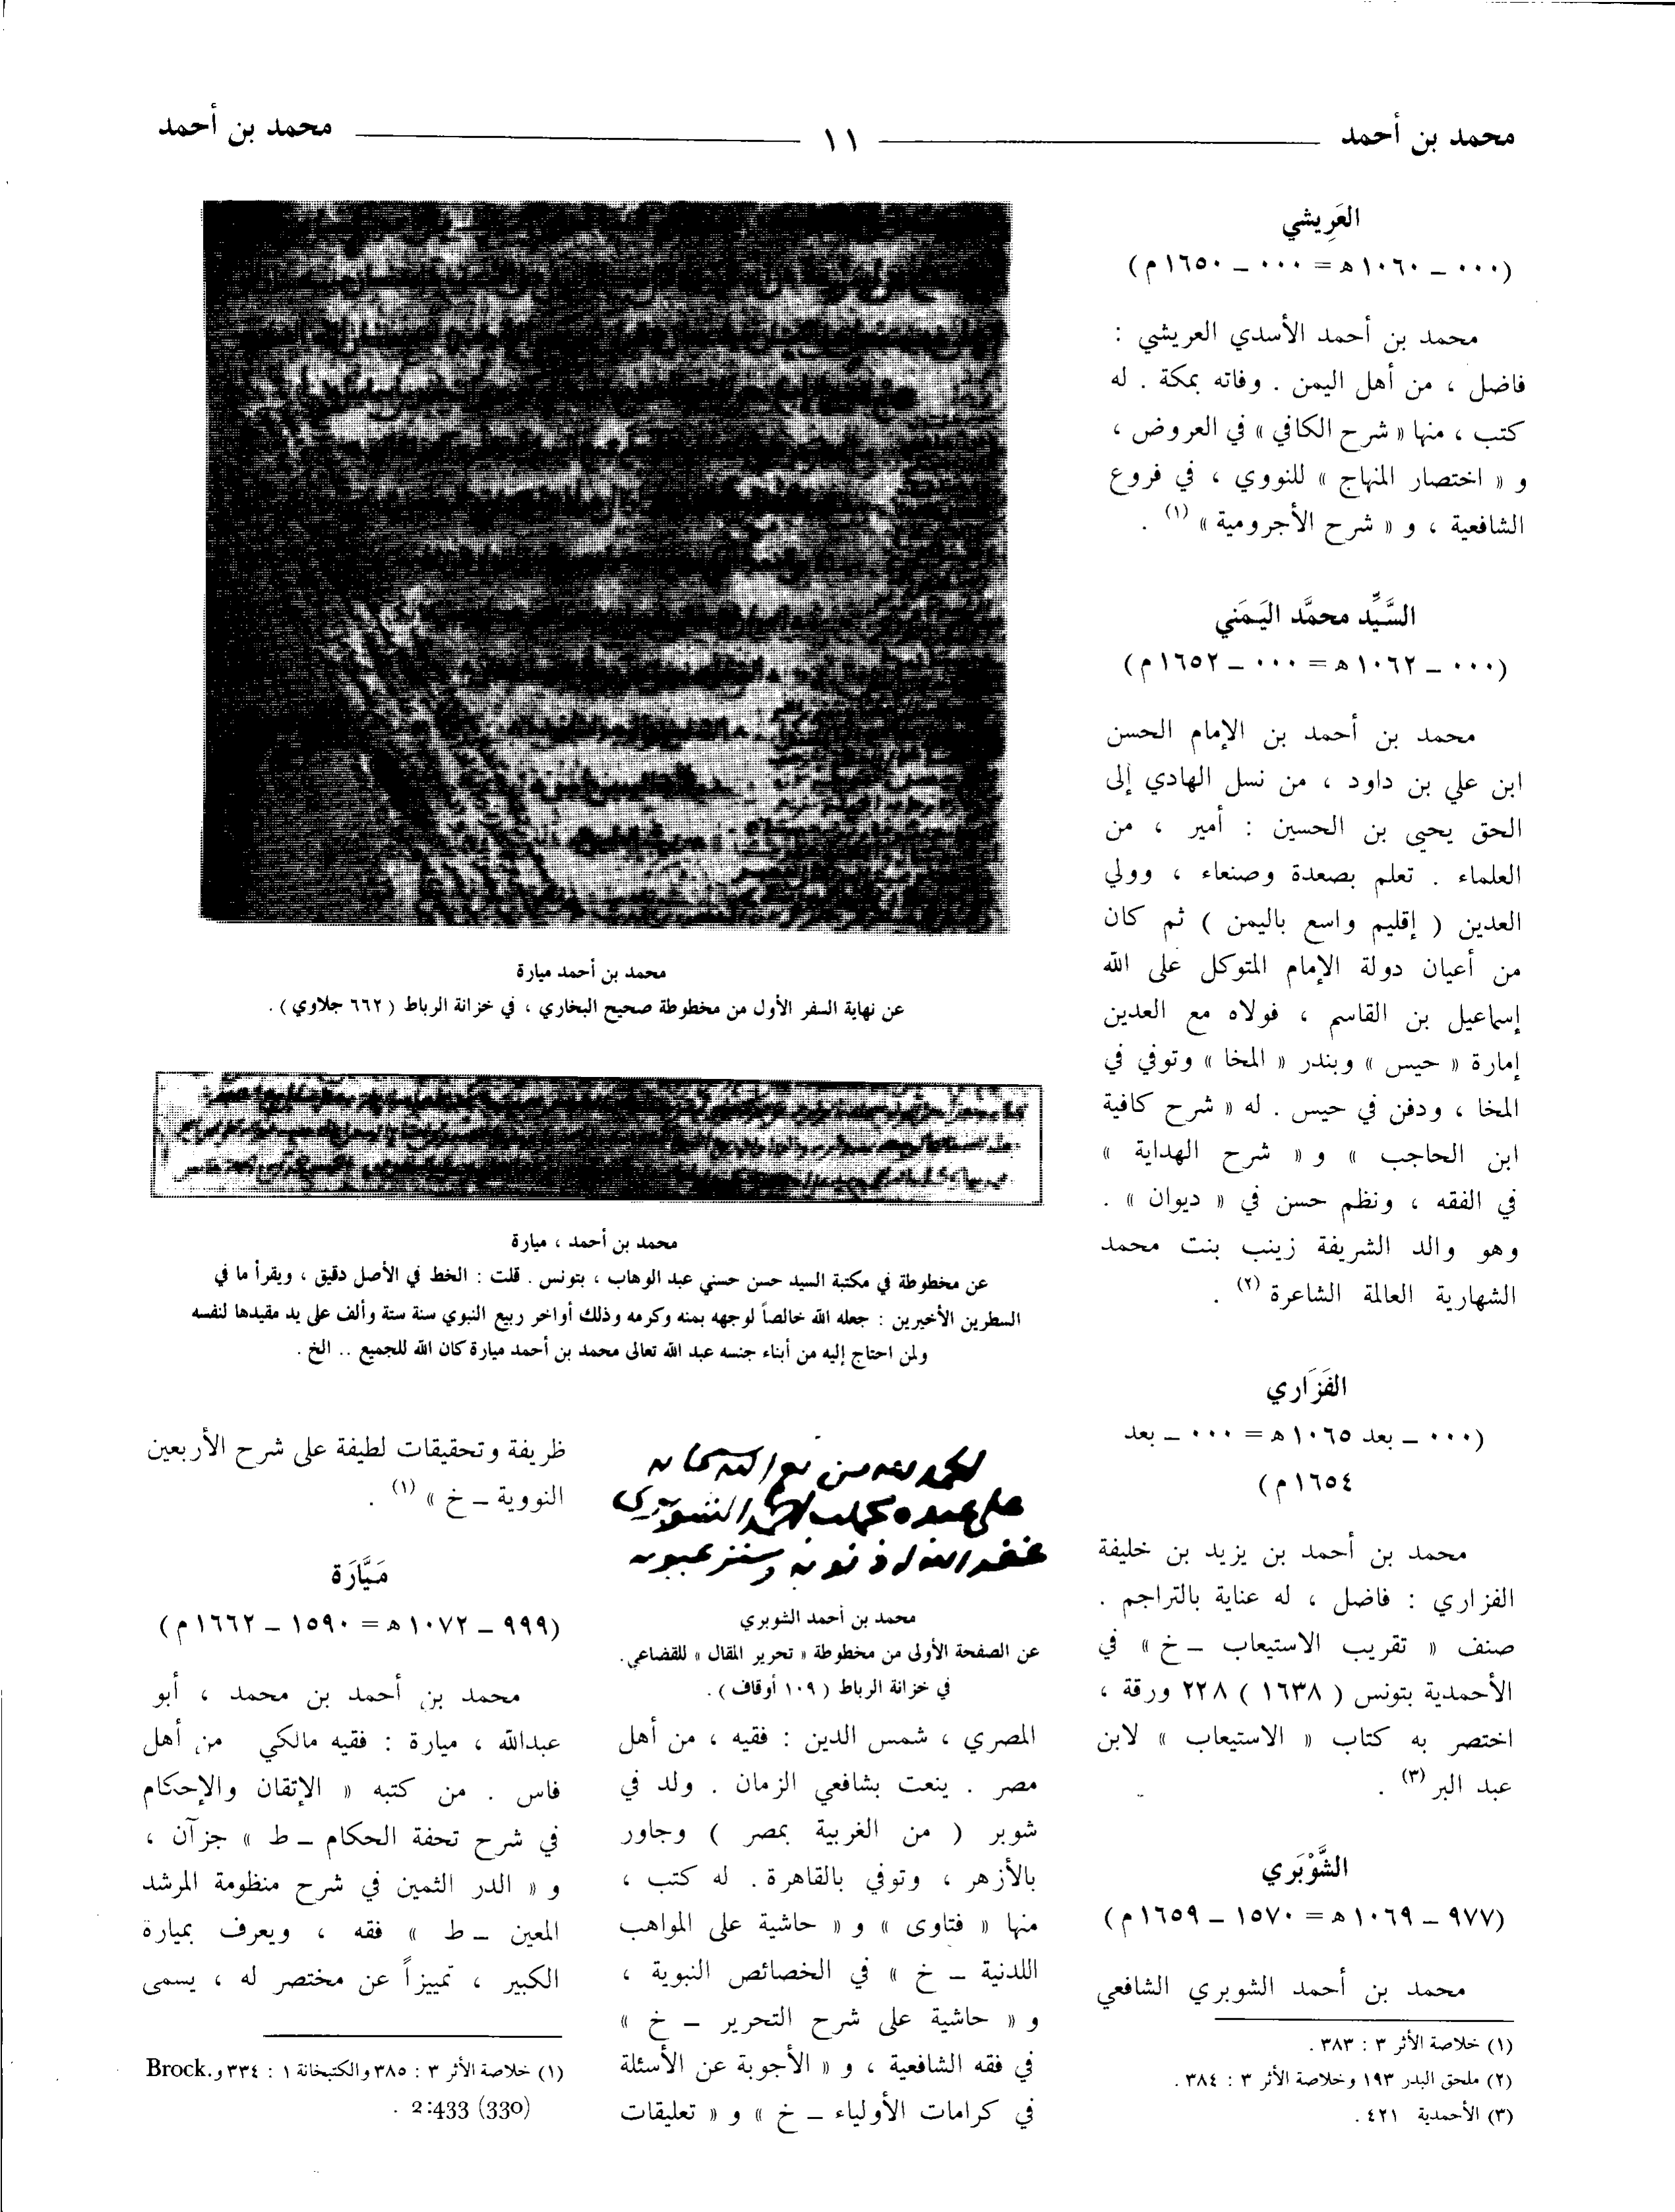 محمد بن أحمد ١١ محمد بن أحمد
العَرِيشي
(٠٠٠ ــ ١٠٦٠ ه = ٠٠٠ ــ ١٦٥٠ م)
محمد بن أحمد الأسدي العريشي :
فاضل ، من أهل اليمن . وفاته بمكة . له
كتب ، منها « شرح الكافي » في العروض ،
و « اختصار المنهاج » للنووي ، في فروع
الشافعية ، و « شرح الأجرومية » (١) .
السَّيِّد محمَّد اليَمَني
(٠٠٠ ــ ١٠٦٢ ه = ٠٠٠ ــ ١٦٥٢ م)
محمد بن أحمد بن الإمام الحسن
ابن علي بن داود ، من نسل الهادي إلى
الحق يحيى بن الحسين : أمير ، من
العلماء . تعلم بصعدة وصنعاء ، وولي
العدين ( إقليم واسع باليمن ) ثم كان
من أعيان دولة الإمام المتوكل على الله
إسماعيل بن القاسم ، فولاه مع العدين
إمارة « حيس » وبندر « المخا » وتوفي في
المخا ، ودفن في حيس . له « شرح كافية
ابن الحاجب » و « شرح الهداية »
في الفقه ، ونظم حسن في « ديوان » .
وهو والد الشريفة زينب بنت محمد
الشهارية العالمة الشاعرة (٢) .
الفَزَاري
(٠٠٠ ــ بعد ١٠٦٥ ه = ٠٠٠ ــ بعد
١٦٥٤ م)
محمد بن أحمد بن يزيد بن خليفة
الفزاري : فاضل ، له عناية بالتراجم .
صنف « تقريب الاستيعاب ــ خ » في
الأحمدية بتونس ( ١٦٣٨ ) ٢٢٨ ورقة ،
اختصر به كتاب « الاستيعاب » لابن
عبد البر (٣) .
الشَّوْبَري
(٩٧٧ ــ ١٠٦٩ ه = ١٥٧٠ ــ ١٦٥٩ م)
محمد بن أحمد الشوبري الشافعي
(١) خلاصة الأثر ٣ : ٣٨٣ .
(٢) ملحق البدر ١٩٣ وخلاصة الأثر ٣ : ٣٨٤ .
(٣) الأحمدية ٤٢١ .
محمد بن أحمد ميارة
عن نهاية السفر الأول من مخطوطة صحيح البخاري ، في خزانة الرباط ( ٦٦٢ جلاوي ) .
محمد بن أحمد ، ميارة
عن مخطوطة في مكتبة السيد حسن حسني عبد الوهاب ، بتونس . قلت : الخط في الأصل دقيق ، ويقرأ ما في
السطرين الأخيرين : جعله الله خالصاً لوجهه بمنه وكرمه وذلك أواخر ربيع النبوي سنة ستة وألف على يد مقيدها لنفسه
ولمن احتاج إليه من أبناء جنسه عبد الله تعالى محمد بن أحمد ميارة كان الله للجميع .. الخ .
محمد بن أحمد الشوبري
عن الصفحة الأولى من مخطوطة « تحرير المقال » للقضاعي.
في خزانة الرباط ( ١٠٩ أوقاف ) .
المصري ، شمس الدين : فقيه ، من أهل
مصر . ينعت بشافعي الزمان . ولد في
شوبر ( من الغربية بمصر ) وجاور
بالأزهر ، وتوفي بالقاهرة . له كتب ،
منها « فتاوى » و « حاشية على المواهب
اللدنية ــ خ » في الخصائص النبوية ،
و « حاشية على شرح التحرير ــ خ »
في فقه الشافعية ، و « الأجوبة عن الأسئلة
في كرامات الأولياء ــ خ » و « تعليقات
ظريفة وتحقيقات لطيفة على شرح الأربعين
النووية ــ خ » (١) .
مَيَّارَة
(٩٩٩ ــ ١٠٧٢ ه = ١٥٩٠ ــ ١٦٦٢ م)
محمد بن أحمد بن محمد ، أبو
عبدالله ، ميارة : فقيه مالكي من أهل
فاس . من كتبه « الإتقان والإحكام
في شرح تحفة الحكام ــ ط » جزآن ،
و « الدر الثمين في شرح منظومة المرشد
المعين ــ ط » فقه ، ويعرف بميارة
الكبير ، تمييزاً عن مختصر له ، يسمى
(١) خلاصة الأثر ٣ : ٣٨٥ والكتبخانة ١ : ٣٣٤ و Brock.
2:433 (330) .